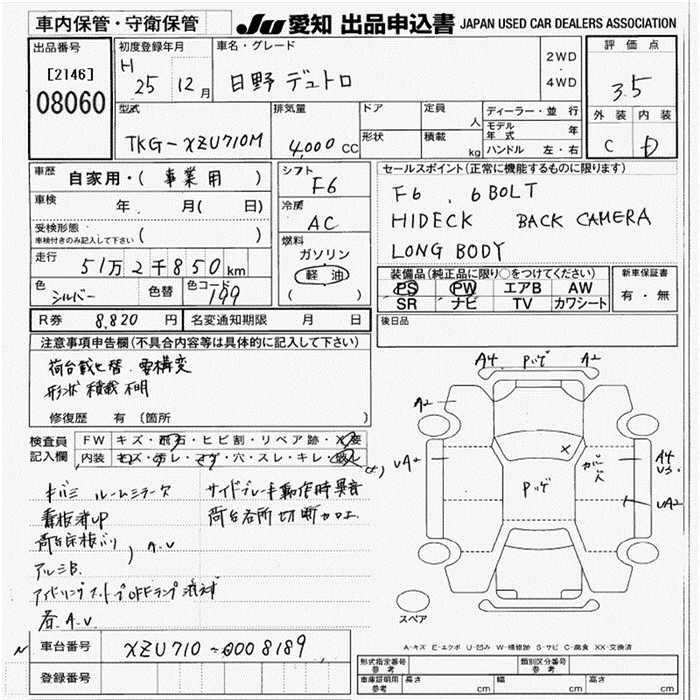 車内保管・守衛保管
JU 愛知 出品申込書 JAPAN USED CAR DEALERS ASSOCIATION
出品番号
[2146]
08060
初度登録年月
H 25 12月
車名・グレード
日野 デュトロ
2WD
4WD
評価点
3.5
外装 内装
C D
型式
TKG-XZU710M
排気量
4,000 CC
ドア
形状
定員
人
積載
kg
ディーラー・並行
モデル年式 年
ハンドル 左・右
車歴
自家用・( 事業用 )
車検
年 月( 日)
受検形態
車検付きのみ記入して下さい ( )
走行
51万2千850km
色
シルバー
色替
色コード
199
シフト
F6
冷房
AC
燃料
ガソリン
軽油
( )
セールスポイント(正常に機能するものに限ります)
F6 . 6BOLT
HIDECK BACK CAMERA
LONG BODY
装備品(純正品に限り○をつけてください)
PS PW エアB AW
SR ナビ TV カワシート
新車保証書
有・無
R券 8,820 円
名変通知期限 月 日
後日品
注意事項申告欄(不具合内容等は具体的に記入して下さい)
荷台載せ替. 要構変
形状 積載 不明
修復歴 有 〔箇所 〕
検査員
記入欄
FW キズ・飛石・ヒビ割・リペア跡・X要
内装 キズ・汚レ・コゲ・穴・スレ・キレ・
キバミ ルームミラーケ サイドブレーキ動作時異音
看板跡UP 荷台各所切断カロエ
A.U
アルミB.
アイドリングストップOFFランプ
A.U
A4 Pッゲ A2
A2
UA2
Pッゲ
X
A4
U3
UA2
スペア
A-キズ E-エクボ U-凹み W-補修跡 S-サビ C-腐食 XX-交換済
車台番号 XZU710-0008189
登録番号
形式指定番号
参考
類別区分番号
参考
車庫証明用
参考
長さ cm
幅 cm
高さ cm